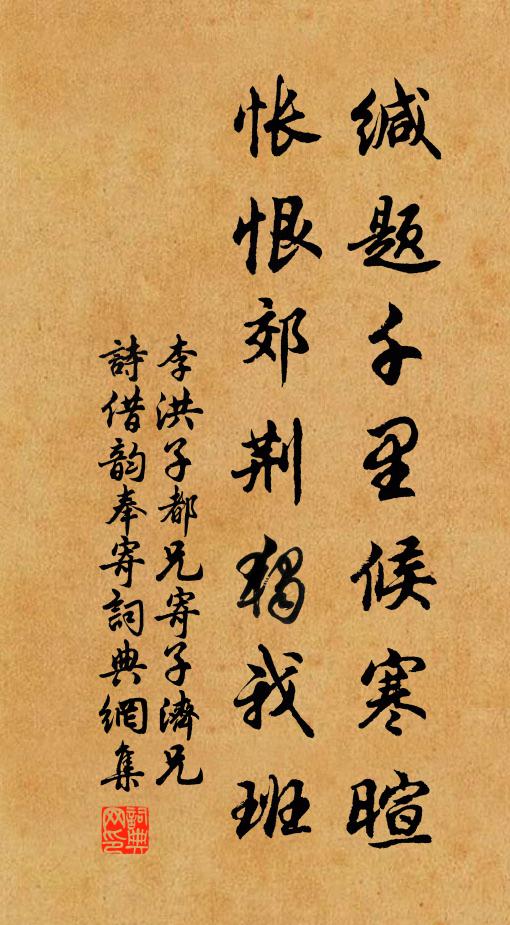 缄题千里候寒暄
怅恨郊荆独我班
李洪子都兄寄子濟兄
詩借韵奉寄詞典網集
詞典网印